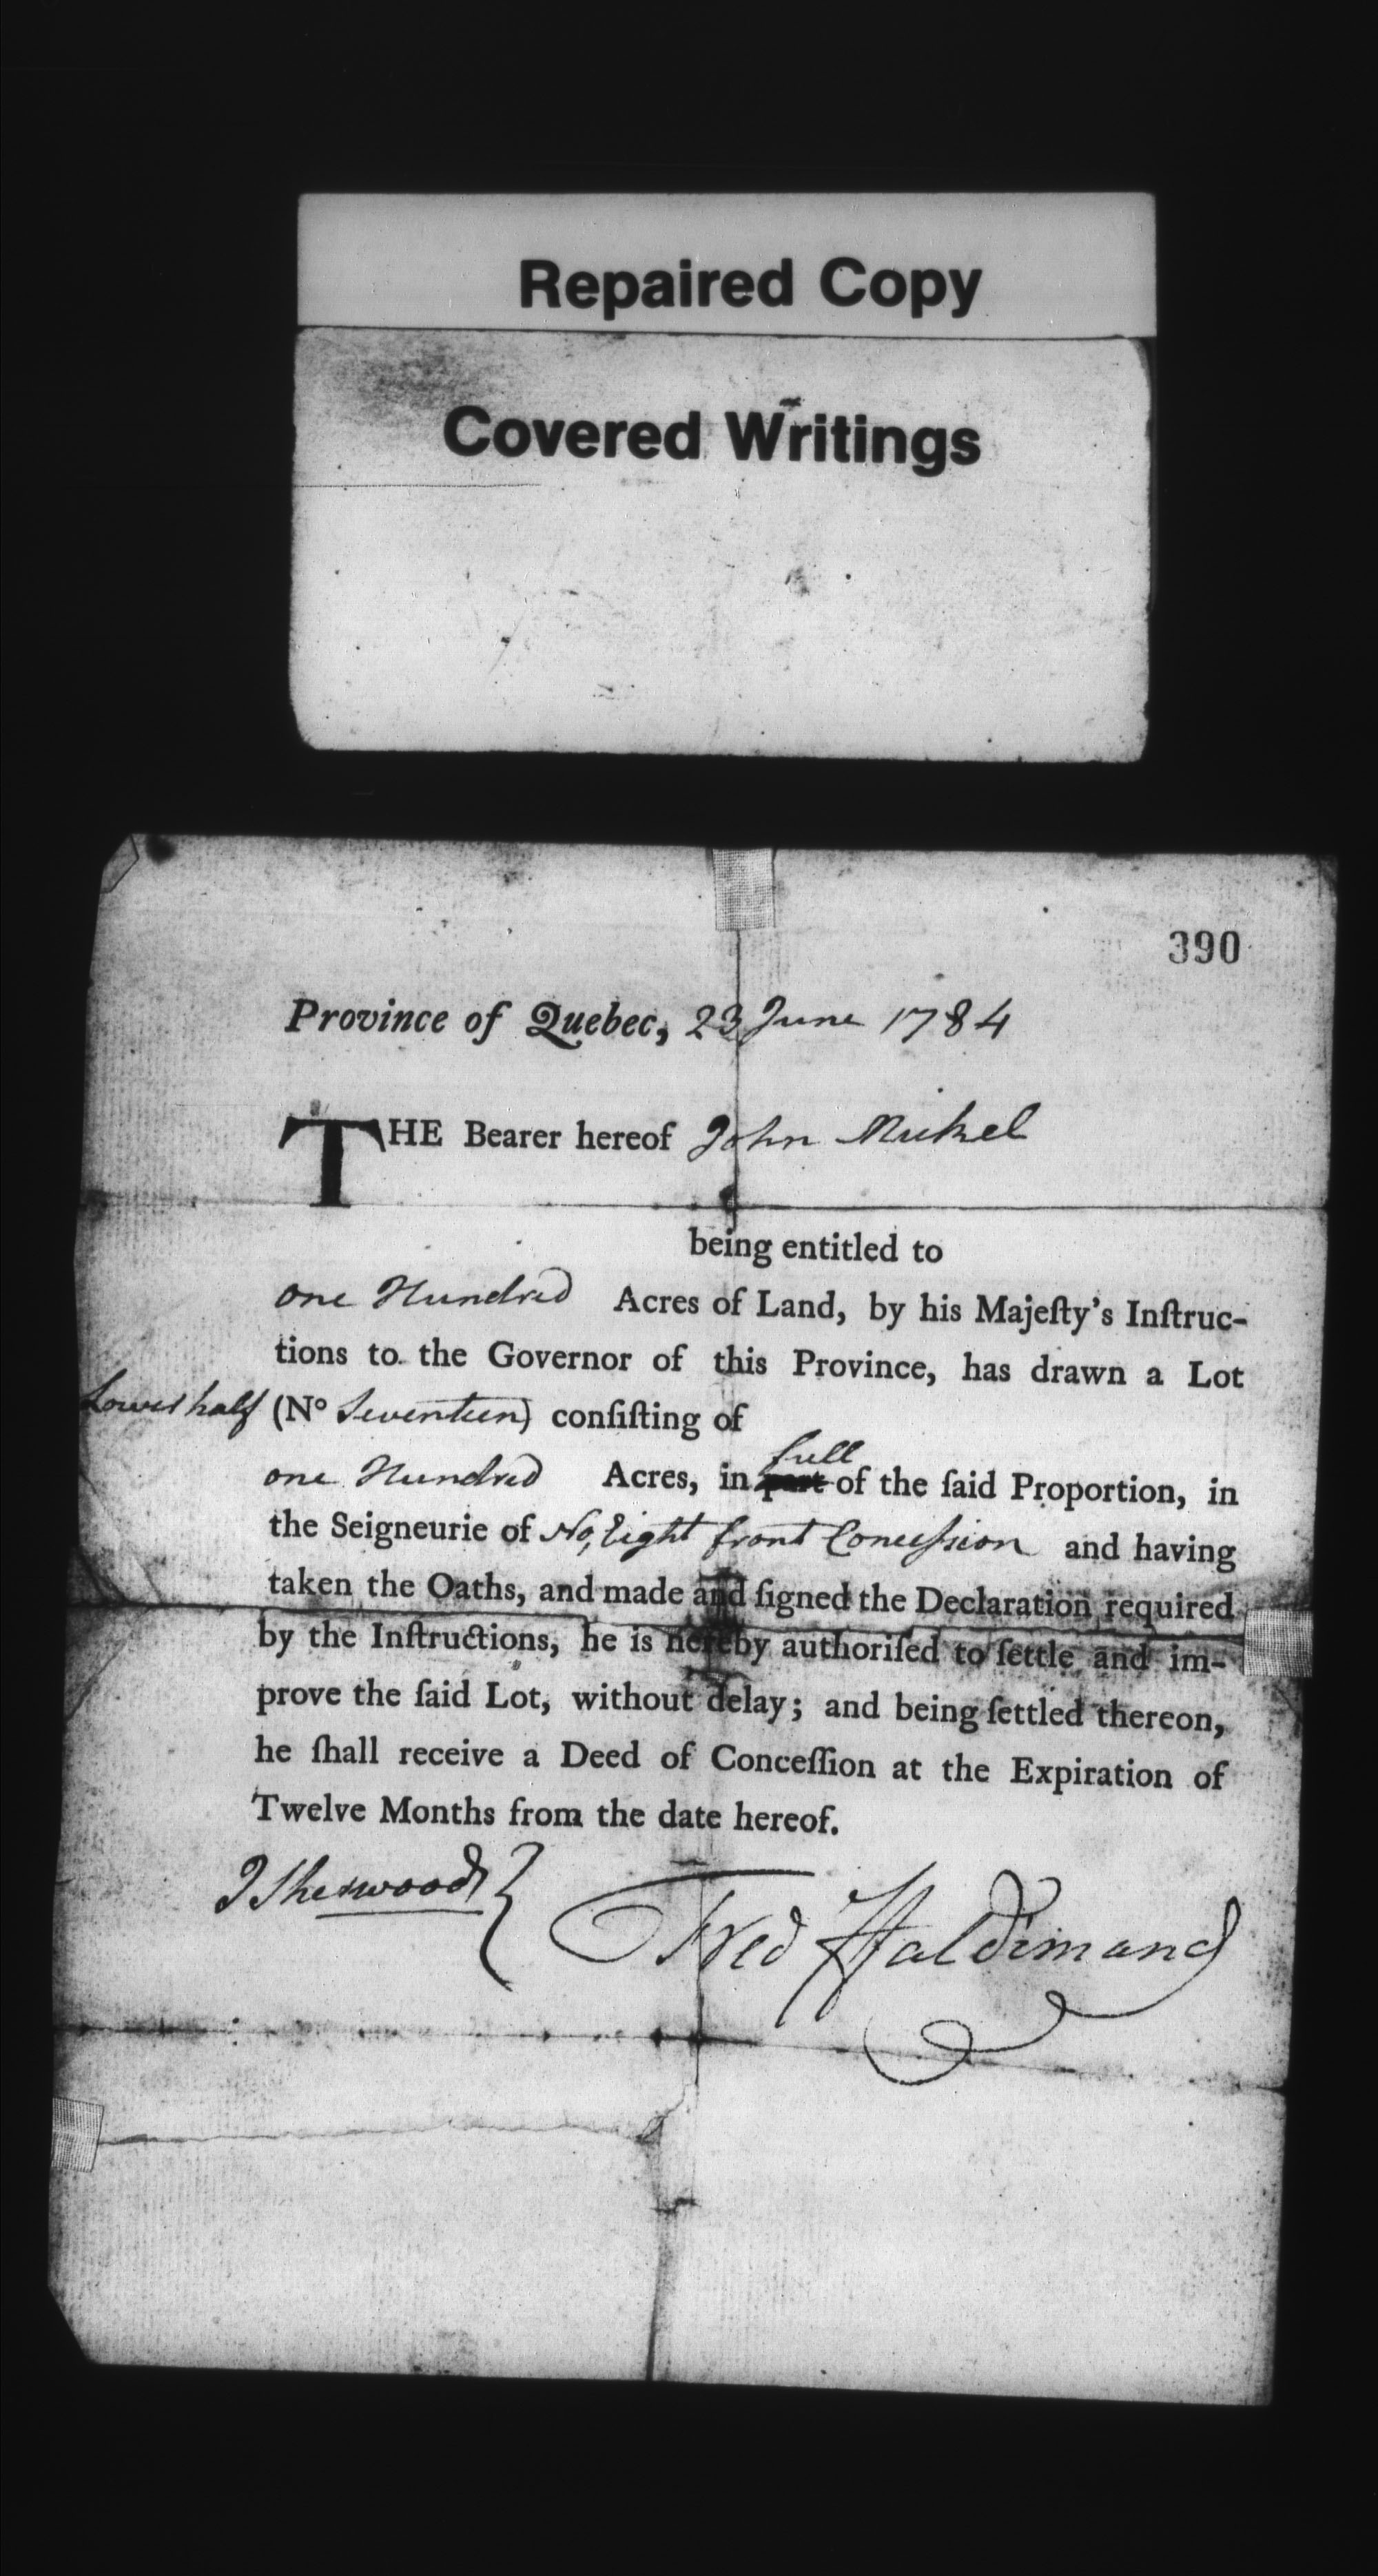 Repaired Copy
Covered Writings
390
Province of Quebec, 23 June 1784
THE Bearer hereof John Mickel
being entitled to
one Hundred Acres of Land, by his Majeſty's Inſtruc-
tions to the Governor of this Province, has drawn a Lot
Lower half (No Seventeen) conſiſting of
full
one Hundred Acres, in part of the ſaid Proportion, in
the Seigneurie of No, Eight front Conceſsion and having
taken the Oaths, and made and ſigned the Declaration required
by the Inſtructions, he is hereby authoriſed to ſettle and im-
prove the ſaid Lot, without delay; and being ſettled thereon,
he ſhall receive a Deed of Conceſſion at the Expiration of
Twelve Months from the date hereof.
J Sherwood } Fred Haldimand